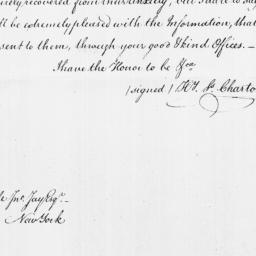 recovered from
ll be extremely pleased with the Information, that
sent to them, through your good & kind Offices. –
I have the Honor to be &ca
(signed) Wy. St. Charto
le Jno. Jay Esqr. –
New York